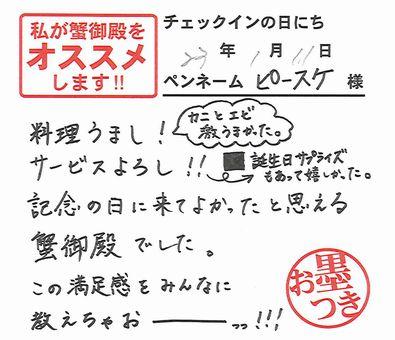 私が蟹御殿を
オススメ
します!!
チェックインの日にち
年 1月 11日
ペンネーム ピースケ 様
料理うまし!
カニとエビ
激うまかった。
サービスよろし!!
誕生日サプライズ
もあって嬉しかった。
記念の日に来てよかったと思える
蟹御殿でした。
この満足感をみんなに
教えちゃお――――っっ!!!
お墨つき